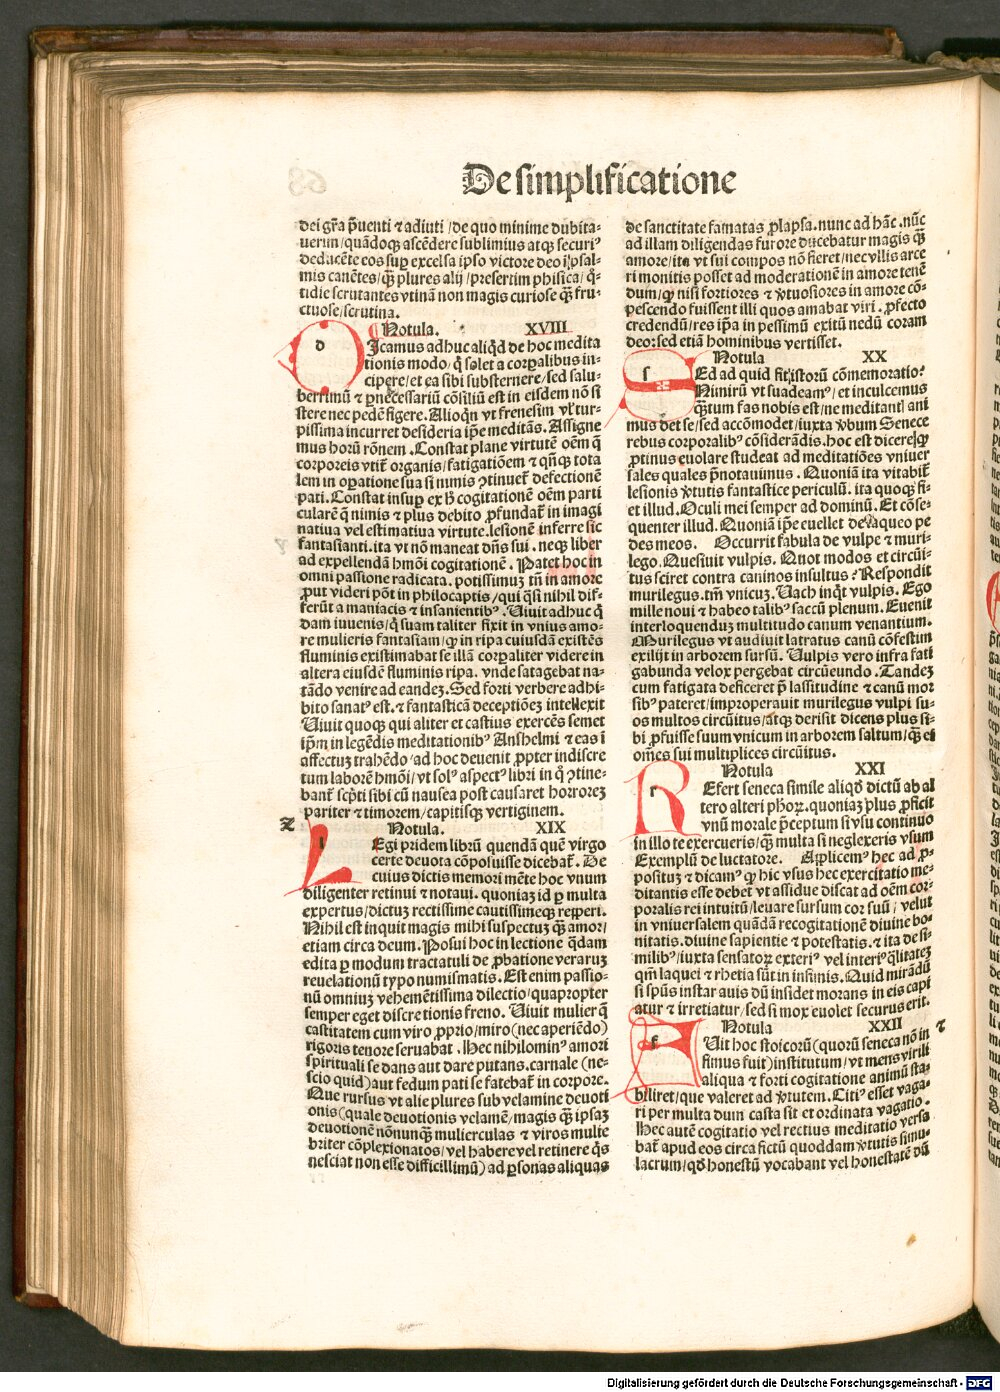 De simplificatione
dei gr̃a p̃uenti ⁊ adiuti /de quo minime dubita-
uerim/quãdoqꝫ ascẽdere sublimius atqꝫ securiꝰ
deducẽte eos suꝑ excelsa ipso victore deo ĩ psal-
mis canẽtes/q̃ꝫ plures alij /presertim phisica/ q̃-
tidie scrutantes vtinã non magis curiose q̃ꝫ fru-
ctuose/scrutina.
Notula. XVIII
dIcamus adhuc aliqd̃ de hoc medita
tionis modo/ q̃ solet a corꝑalibus in-
cipere/et ea sibi substernere/sed salu-
berrimũ ⁊ ꝑnecessariũ cõsiliũ est in eisdem nõ si
stere nec pedẽ figere. Alioqn̄ vt frenesim vl̓ tur-
pissima incurret desideria ip̃e meditãs. Assigne
mus horũ rõnem. Constat plane virtutẽ oẽm q̃
corporeis vtit̃ organis/fatigatiõem ⁊ qñqꝫ tota
lem in oꝑatione sua si nimis ꝯtinuet̃ defectionẽ
pati. Constat insuꝑ ex h̃ cogitationẽ oẽm parti
cularẽ q̃ nimis ⁊ plus debito ꝓfundat̃ in imagi
natiua vel estimatiua virtute. lesionẽ inferre sic
fantasianti. ita vt nõ maneat dñs sui. neqꝫ liber
ad expellendã hmõi cogitationẽ. Patet hoc in
omni passione radicata. potissimuꝫ tñ in amore
ꝓut videri põt in philocaptis/qui q̃si nihil dif-
ferũt a maniacis ⁊ insanientibꝰ. Uiuit adhuc q̃
dam iuuenis/q̃ suam taliter fixit in vnius amo-
re mulieris fantasiam/ꝙ in ripa cuiusdã existẽs
fluminis existimabat se illã corꝑaliter videre in
altera eiusdẽ fluminis ripa. vnde satagebat na-
tãdo venire ad eandeꝫ. Sed forti verbere adhi-
bito sanatꝰ est. ⁊ fantasticã deceptiõeꝫ intellexit
Uiuit quoqꝫ qui aliter et castius exercẽs semet
ip̃m in legẽdis meditationibꝰ Anshelmi ⁊ eas ĩ
affectuꝫ trahẽdo/ad hoc deuenit ꝓpter indiscre
tum laborẽ hmõi/vt solꝰ aspectꝰ libri in q̃ ꝯtine-
bant̃ scp̃ti sibi cũ nausea post causaret horroreꝫ
pariter ⁊ timorem/capitisqꝫ vertiginem.
Notula. XIX
lEgi pridem librũ quendã quẽ virgo
certe deuota cõposuisse dicebat̃. De
cuius dictis memori mẽte hoc vnum
diligenter retinui ⁊ notaui. quoniaꝫ id ꝑ multa
expertus/dictuꝫ rectissime cautissimeqꝫ reꝑeri.
Nihil est inquit magis mihi suspectuꝫ q̃ꝫ amor/
etiam circa deum. Posui hoc in lectione q̃dam
edita ꝑ modum tractatuli de ꝓbatione veraruꝫ
reuelationũ typo numismatis. Est enim passio-
nũ omniuꝫ vehemẽtissima dilectio/quapropter
semper eget discretionis freno. Uiuit mulier q̃
castitatem cum viro ꝓprio/miro(nec aperiẽdo)
rigoris tenore seruabat. Hec nihilominꝰ amori
spirituali se dans aut dare putans. carnale (ne-
scio quid)aut fedum pati se fatebat̃ in corpore.
Que rursus vt alie plures sub velamine deuoti
onis(quale deuotionis velamẽ/magis q̃ꝫ ipsaꝫ
deuotionẽ nõnunq̃ꝫ mulierculas ⁊ viros mulie
briter cõplexionatos/vel habere vel retinere q̃s
nesciat non esse difficillimũ)ad ꝑsonas aliquas
de sanctitate famatas ꝓlapsa. nunc ad hãc. nũc
ad illam diligendas furore ducebatur magis q̃ꝫ
amore/ita vt sui compos nõ fieret/nec vllis arce
ri monitis posset ad moderationẽ in amore tenẽ
dum/ꝙ nisi fortiores ⁊ v̓tuosiores in amore cõ-
pescendo fuissent illi quos amabat viri. ꝓfecto
credendũ/res ip̃a in pessimũ exitũ nedũ coram
deo:sed etiã hominibus vertisset.
Notula XX
sEd ad quid fit istorũ cõmemoratio?
Nimirũ vt suadeamꝰ/et inculcemus
q̃ꝫtum fas nobis est/ne meditant̃ ani
mus det se/sed accõmodet/iuxta v̓bum Senece
rebus corporalibꝰ cõsiderãdis. hoc est dicere/ꝙ
ꝓtinus euolare studeat ad meditatiões vniuer
sales quales p̃notauimus. Quoniã ita vitabit̃
lesionis v̓tutis fantastice periculũ. ita quoqꝫ fi-
et illud. Oculi mei semper ad dominũ. Et cõse-
quenter illud. Quoniã ip̃e euellet de laqueo pe
des meos. Occurrit fabula de vulpe ⁊ muri-
lego. Quesiuit vulpis. Quot modos et circũi-
tus sciret contra caninos insultus? Respondit
murilegus. tm̃ vnicuꝫ. Uach inq̃t vulpis. Ego
mille noui ⁊ habeo talibꝰ saccũ plenum. Euenit
interloquenduꝫ multitudo canum venantium.
Murilegus vt audiuit latratus canũ cõfestim
exilijt in arborem sursũ. Uulpis vero infra fati
gabunda velox pergebat circũeundo. Tandeꝫ
cum fatigata deficeret p̃ lassitudine ⁊ canũ mor
sibꝰ pateret/improperauit murilegus vulpi su-
os multos circũitus/atqꝫ derisit dicens plus si-
bi ꝓfuisse suum vnicum in arborem saltum/q̃ꝫ ei
om̃es sui multiplices circũitus.
Notula XXI
rEfert seneca simile aliqd̃ dictũ ab al
tero alteri phoꝝ. quoniaꝫ plus ꝓficit
vnũ morale p̃ceptum si vsu continuo
in illo te exercueris/q̃ꝫ multa si neglexeris vsum
Exemplũ de luctatore. Applicemꝰ hec ad ꝓ-
posituꝫ ⁊ dicamꝰ ꝙ hic vsus hec exercitatio me-
ditantis esse debet vt assidue discat ad oẽm cor-
poralis rei intuitũ/leuare sursum cor suũ/ velut
in vniuersalem quãdã recogitationẽ diuine bo-
nitatis. diuine sapientie ⁊ potestatis. ⁊ ita de si-
milibꝰ/iuxta sensatoꝝ exteriꝰ vel interiꝰ q̃litateꝫ
qm̃ laquei ⁊ rhetia sũt in infimis. Quid mirãdũ
si sp̃us instar auis dũ insidet morans in eis capi
atur ⁊ irretiatur/sed si mox euolet securus erit.
Notula XXII
fUit hoc stoicorũ(quorũ seneca nõ in
fimus fuit)institutum/vt mens virili
aliqua ⁊ forti cogitatione animũ sta-
biliret/que valeret ad v̓tutem. Citiꝰ esset vaga-
ri per multa dum casta sit et ordinata vagatio.
Hec autẽ cogitatio vel rectius meditatio versa
bat̃ apud eos circa fictũ quoddam v̓tutis simu-
lacrum/qd̃ honestũ vocabant vel honestatẽ dũ
Digitalisierung gefördert durch die Deutsche Forschungsgemeinschaft - DFG